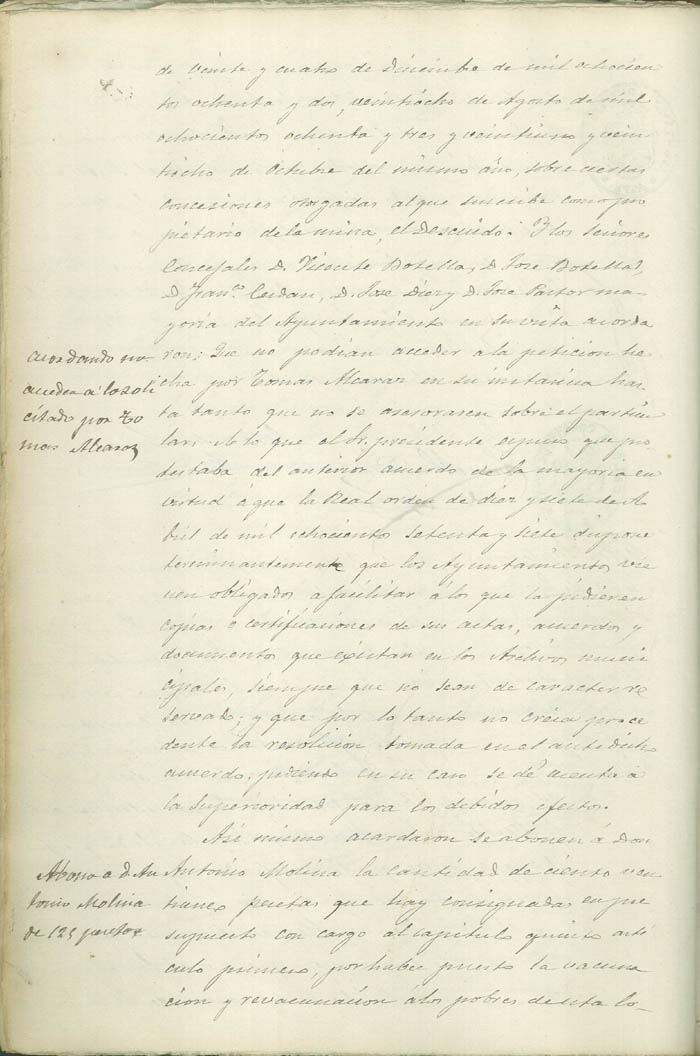 de veinte y cuatro de Diciembre de mil ochocien
tos ochenta y dos, veintiocho de Agosto de mil
ochocientos ochenta y tres y veintiuno y vein
tiocho de Octubre del mismo año, sobre ciertas
concesiones otorgadas al que suscribe como pro
pietario de la mina, el Descuido. Y los Señores
Concejales D. Vicente Botella, D. Jose Botella,
D. Franco. Cerdan, D. Jose Diez y D. Jose Pastor ma-
yoria del Ayuntamiento en su vista acorda
ron: Que no podian acceder a la peticion he-
cha por Tomas Alcaraz en su instancia has-
ta tanto que no se asesorasen sobre el particu-
lar; A lo que el Sr. presidente espuso que pro
testaba del anterior acuerdo de la mayoria en
virtud á que la Real orden de diez y siete de A-
bril de mil ochociento setenta y siete dispone
terminantemente que los Ayuntamientos vie
nen obligados a facilitar á los que la pidieren
copias o certificaciones de sus actas, acuerdos y
documentos que existan en los Archivos muni
cipales, siempre que no sean de caracter re
servado; y que por lo tanto no creia proce
dente la resolucion tomada en el antedicho
acuerdo, pidiendo en su caso se dé cuenta á
la Superioridad para los debidos efectos.
Asi mismo acordaron se abonen á Don
Antonio Molina la cantidad de ciento vein
ticinco pesetas que hay consignadas en pre
supuesto con cargo al capitulo quinto arti
culo primero, por haber puesto la vacuna
cion y revacunacion á los pobres de esta lo-
acordando no
acceder á lo soli
citado por To
mas Alcaraz
Abono a D. An
tonio Molina
de 125 pesetas